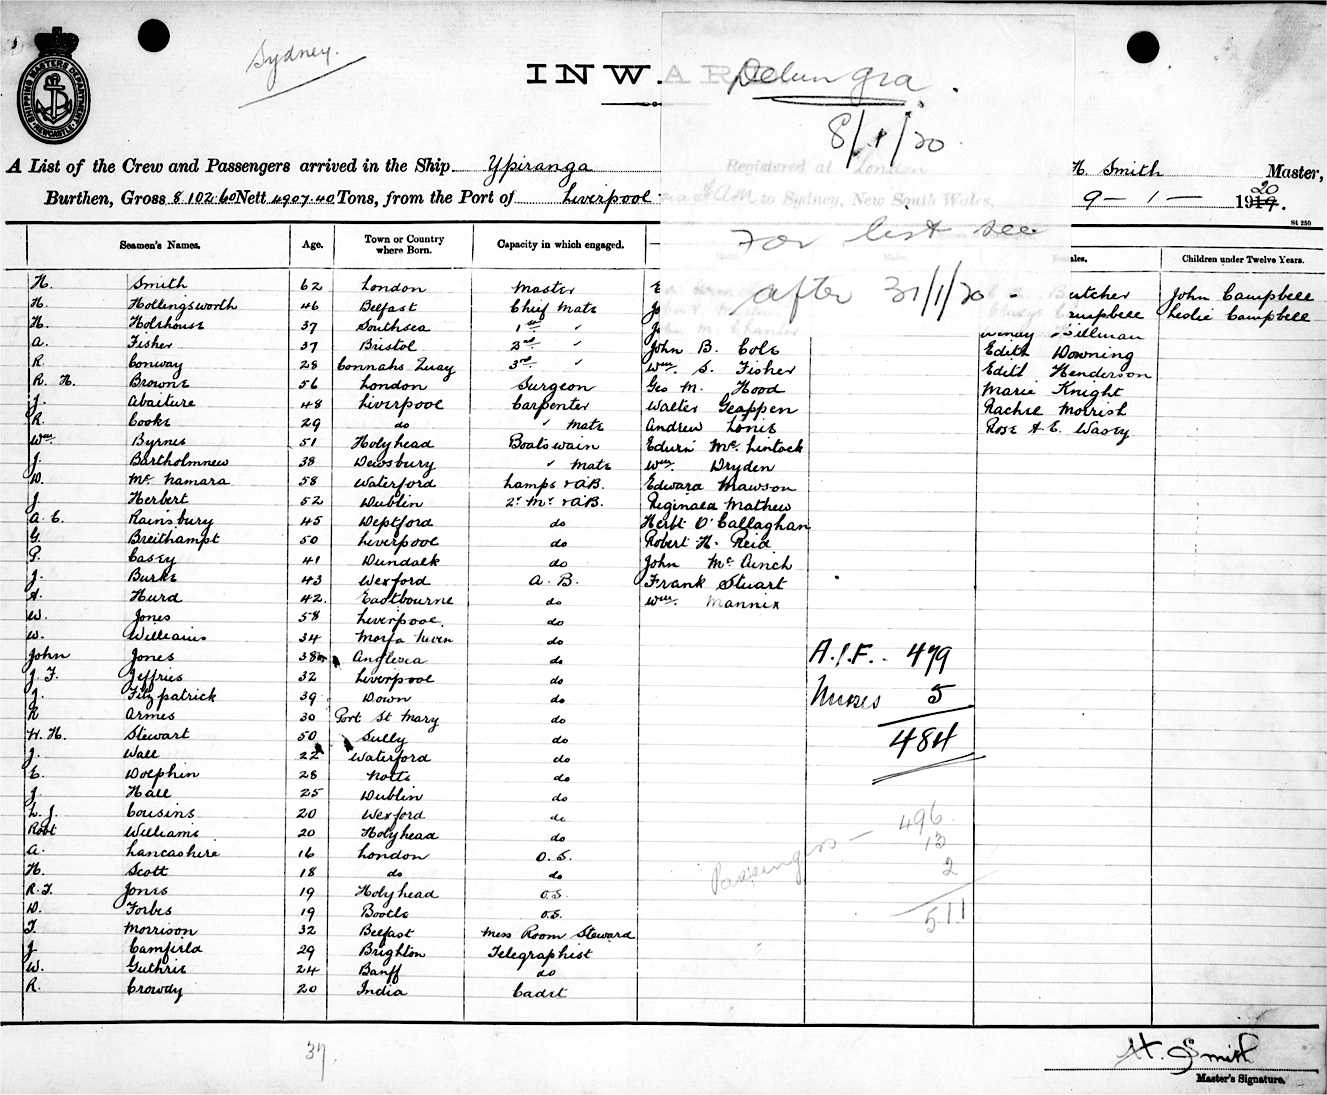 Sydney.
SHIPPING MASTERS DEPARTMENT NEWCASTLE
INWARD
Delungra
8/1/20
A List of the Crew and Passengers arrived in the Ship Ypiranga Registered at London H. Smith Master,
Burthen, Gross 8102.60 Nett 4907.40 Tons, from the Port of Liverpool to Sydney, New South Wales, 9 - 1 - 1919. 20
St 250
For list see
after 31/1/20
Seamen's Names. Age. Town or Country where Born. Capacity in which engaged. Children under Twelve Years.
H. Smith 62 London Master Butcher John Campbell
H. Hollingsworth 46 Belfast Chief Mate Campbell Leslie Campbell
H. Holehouse 37 Southsea 1st " Hillman
A. Fisher 37 Bristol 2nd " John B. Cole Edith Downing
R. Conway 28 Connahs Quay 3rd " Wm. S. Fisher Edith Henderson
R. H. Browne 56 London Surgeon Geo M. Hood Marie Knight
J. Abaiture 48 Liverpool Carpenter Walter Geappen Rachel Morrish
R. Cooke 29 do " Mate Andrew Innis Rose A. E. Wasey
Wm. Byrnes 51 Holyhead Boatswain Edwin McLintock
J. Bartholmnew 38 Dewsbury " Mate Wm. Dryden
D. McNamara 58 Waterford Lamps & A.B. Edward Mawson
J. Herbert 52 Dublin 2r Mr & A.B. Reginald Mathew
A. E. Rainsbury 45 Deptford do Herbt O'Callaghan
G. Breithampt 50 Liverpool do Robert H. Reid
P. Casey 41 Dundalk do John McAinch
J. Burke 43 Wexford A. B. Frank Stuart
A. Hurd 42 Eastbourne do Wm. Mannix
W. Jones 58 Liverpool do
W. Williams 34 Morfa Nevin do
John Jones 38 Anglesia do
J. F. Jeffries 32 Liverpool do
J. Fitzpatrick 39 Down do
R Armes 30 Port St Mary do
W. H. Stewart 50 Sully do
J. Wall 22 Waterford do
E. Dolphin 28 Notts do
J. Hall 25 Dublin do
L. J. Cousins 20 Wexford do
Robt Williams 20 Holyhead do
A. Lancashire 16 London O.S.
H. Scott 18 do do
R. T. Jones 19 Holyhead O.S.
D. Forbes 19 Bootle O.S.
T. Morrison 32 Belfast Mess Room Steward
J Camfield 29 Brighton Telegraphist
W. Guthrie 24 Banff do
R. Crowdy 20 India Cadet
A.I.F. 479
Nurses 5
484
496
Passengers - 13
2
511
37
H. Smith
Master's Signature.